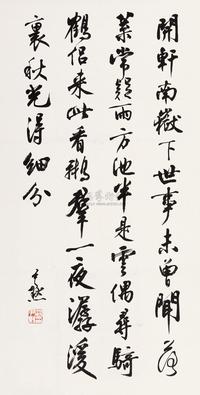 開軒南嶽下世事未曾聞落
葉常疑雨方池半是雲偶尋騎
鶴侶來此看鵝羣一夜潺湲
裏秋光得細分
尹默